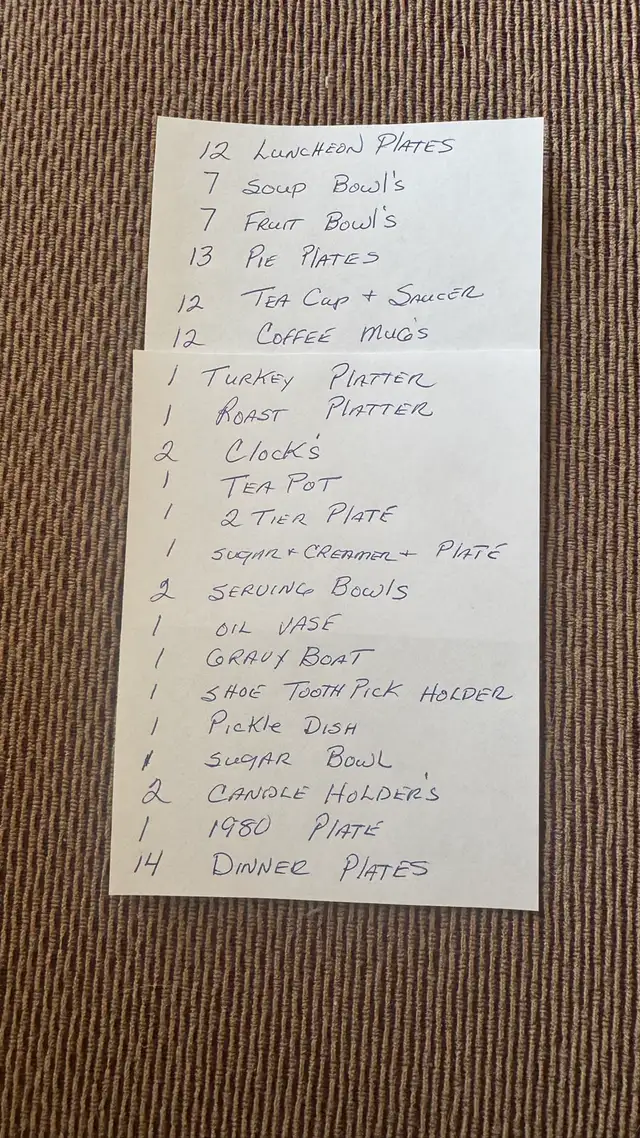 12 Luncheon Plates
7 Soup Bowl's
7 Fruit Bowl's
13 Pie Plates
12 Tea Cup + Saucer
12 Coffee Mug's
1 Turkey Platter
1 Roast Platter
2 Clock's
1 Tea Pot
1 2 Tier Plate
1 Sugar + Creamer + Plate
2 Serving Bowls
1 Oil Vase
1 Gravy Boat
1 Shoe Tooth Pick Holder
1 Pickle Dish
1 Sugar Bowl
2 Candle Holder's
1 1980 Plate
14 Dinner Plates